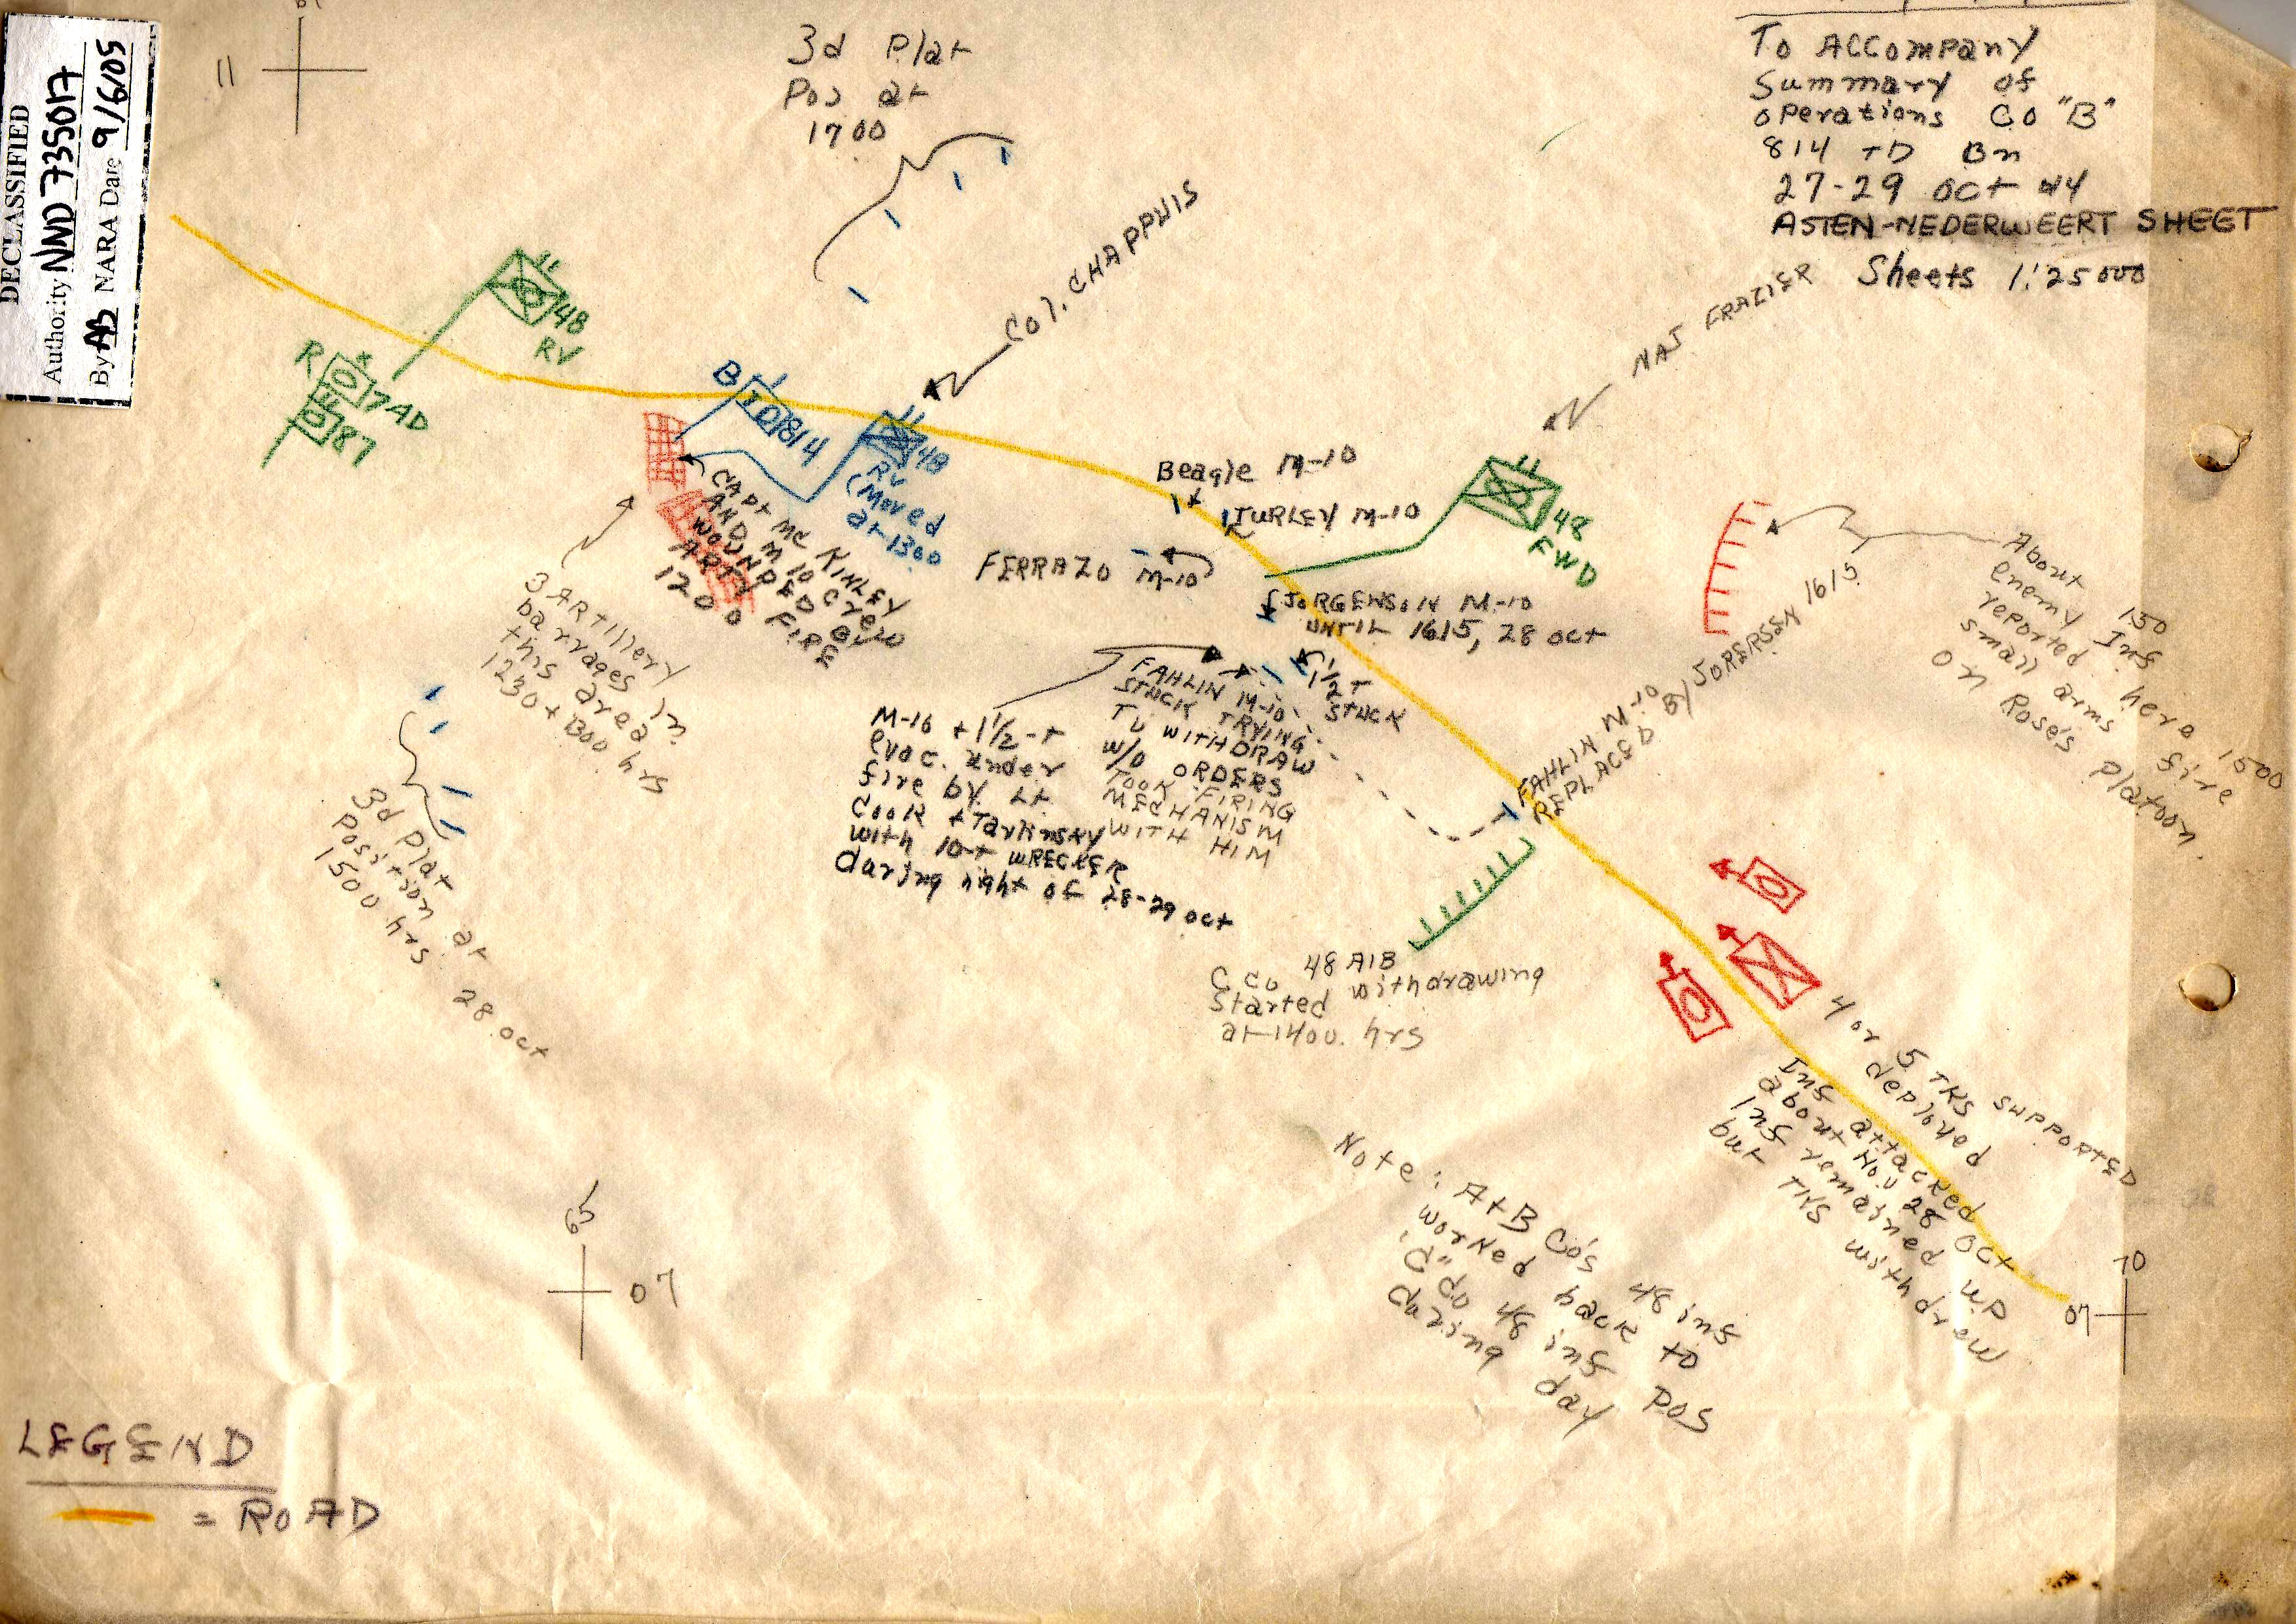 DECLASSIFIED
Authority NND 735017
By AB NARA Date 9/6/05
11
3d Plat
Pos at
1700
To Accompany
Summary of
operations Co "B"
814 TD Bn
27-29 Oct 44
ASTEN-NEDERWEERT SHEET
Sheets 1:25000
COL. CHAPPUIS
MAJ FRAZIER
48
RV
R
7AD
87
B
TD
814
48
RV
(Moved
at 1300
CAPT MC KINLEY
AND M 10 Crew
WOUNDED BY
ARTY FIRE
1200
3 ARTillery
barrages in
this area
1230 + 1300 hrs
Beagle M-10
TURLEY M-10
FERRAZO M-10
48
FWD
JORGENSON M-10
UNTIL 1615, 28 Oct
1/2 T
STUCK
FAHLIN M-10
STUCK TRYING
TO WITHDRAW
W/O ORDERS
TOOK FIRING
MECHANISM
WITH HIM
M-10 + 1 1/2-T
evac. under
fire by Lt
Cook + Tarlinsky
with 10-T WRECKER
during night of 28-29 Oct
FAHLIN M-10
REPLACED BY JORERSEN 1615
About 150
enemy Inf here 1500
reported
small arms fire
on Rose's platoon.
3d Plat
Position at
1500 hrs 28 Oct
C Co 48 AIB
Started withdrawing
at 1400. hrs
4 or 5 TKS SUPPORTED
deployed
Inf attacked
about 1100 28 Oct
Inf remained up
but TKS withdrew
Note: A+B Co's 48 inf
worked back to
"C" Co 48 inf Pos
during day
65
07
70
07
LEGEND
= ROAD